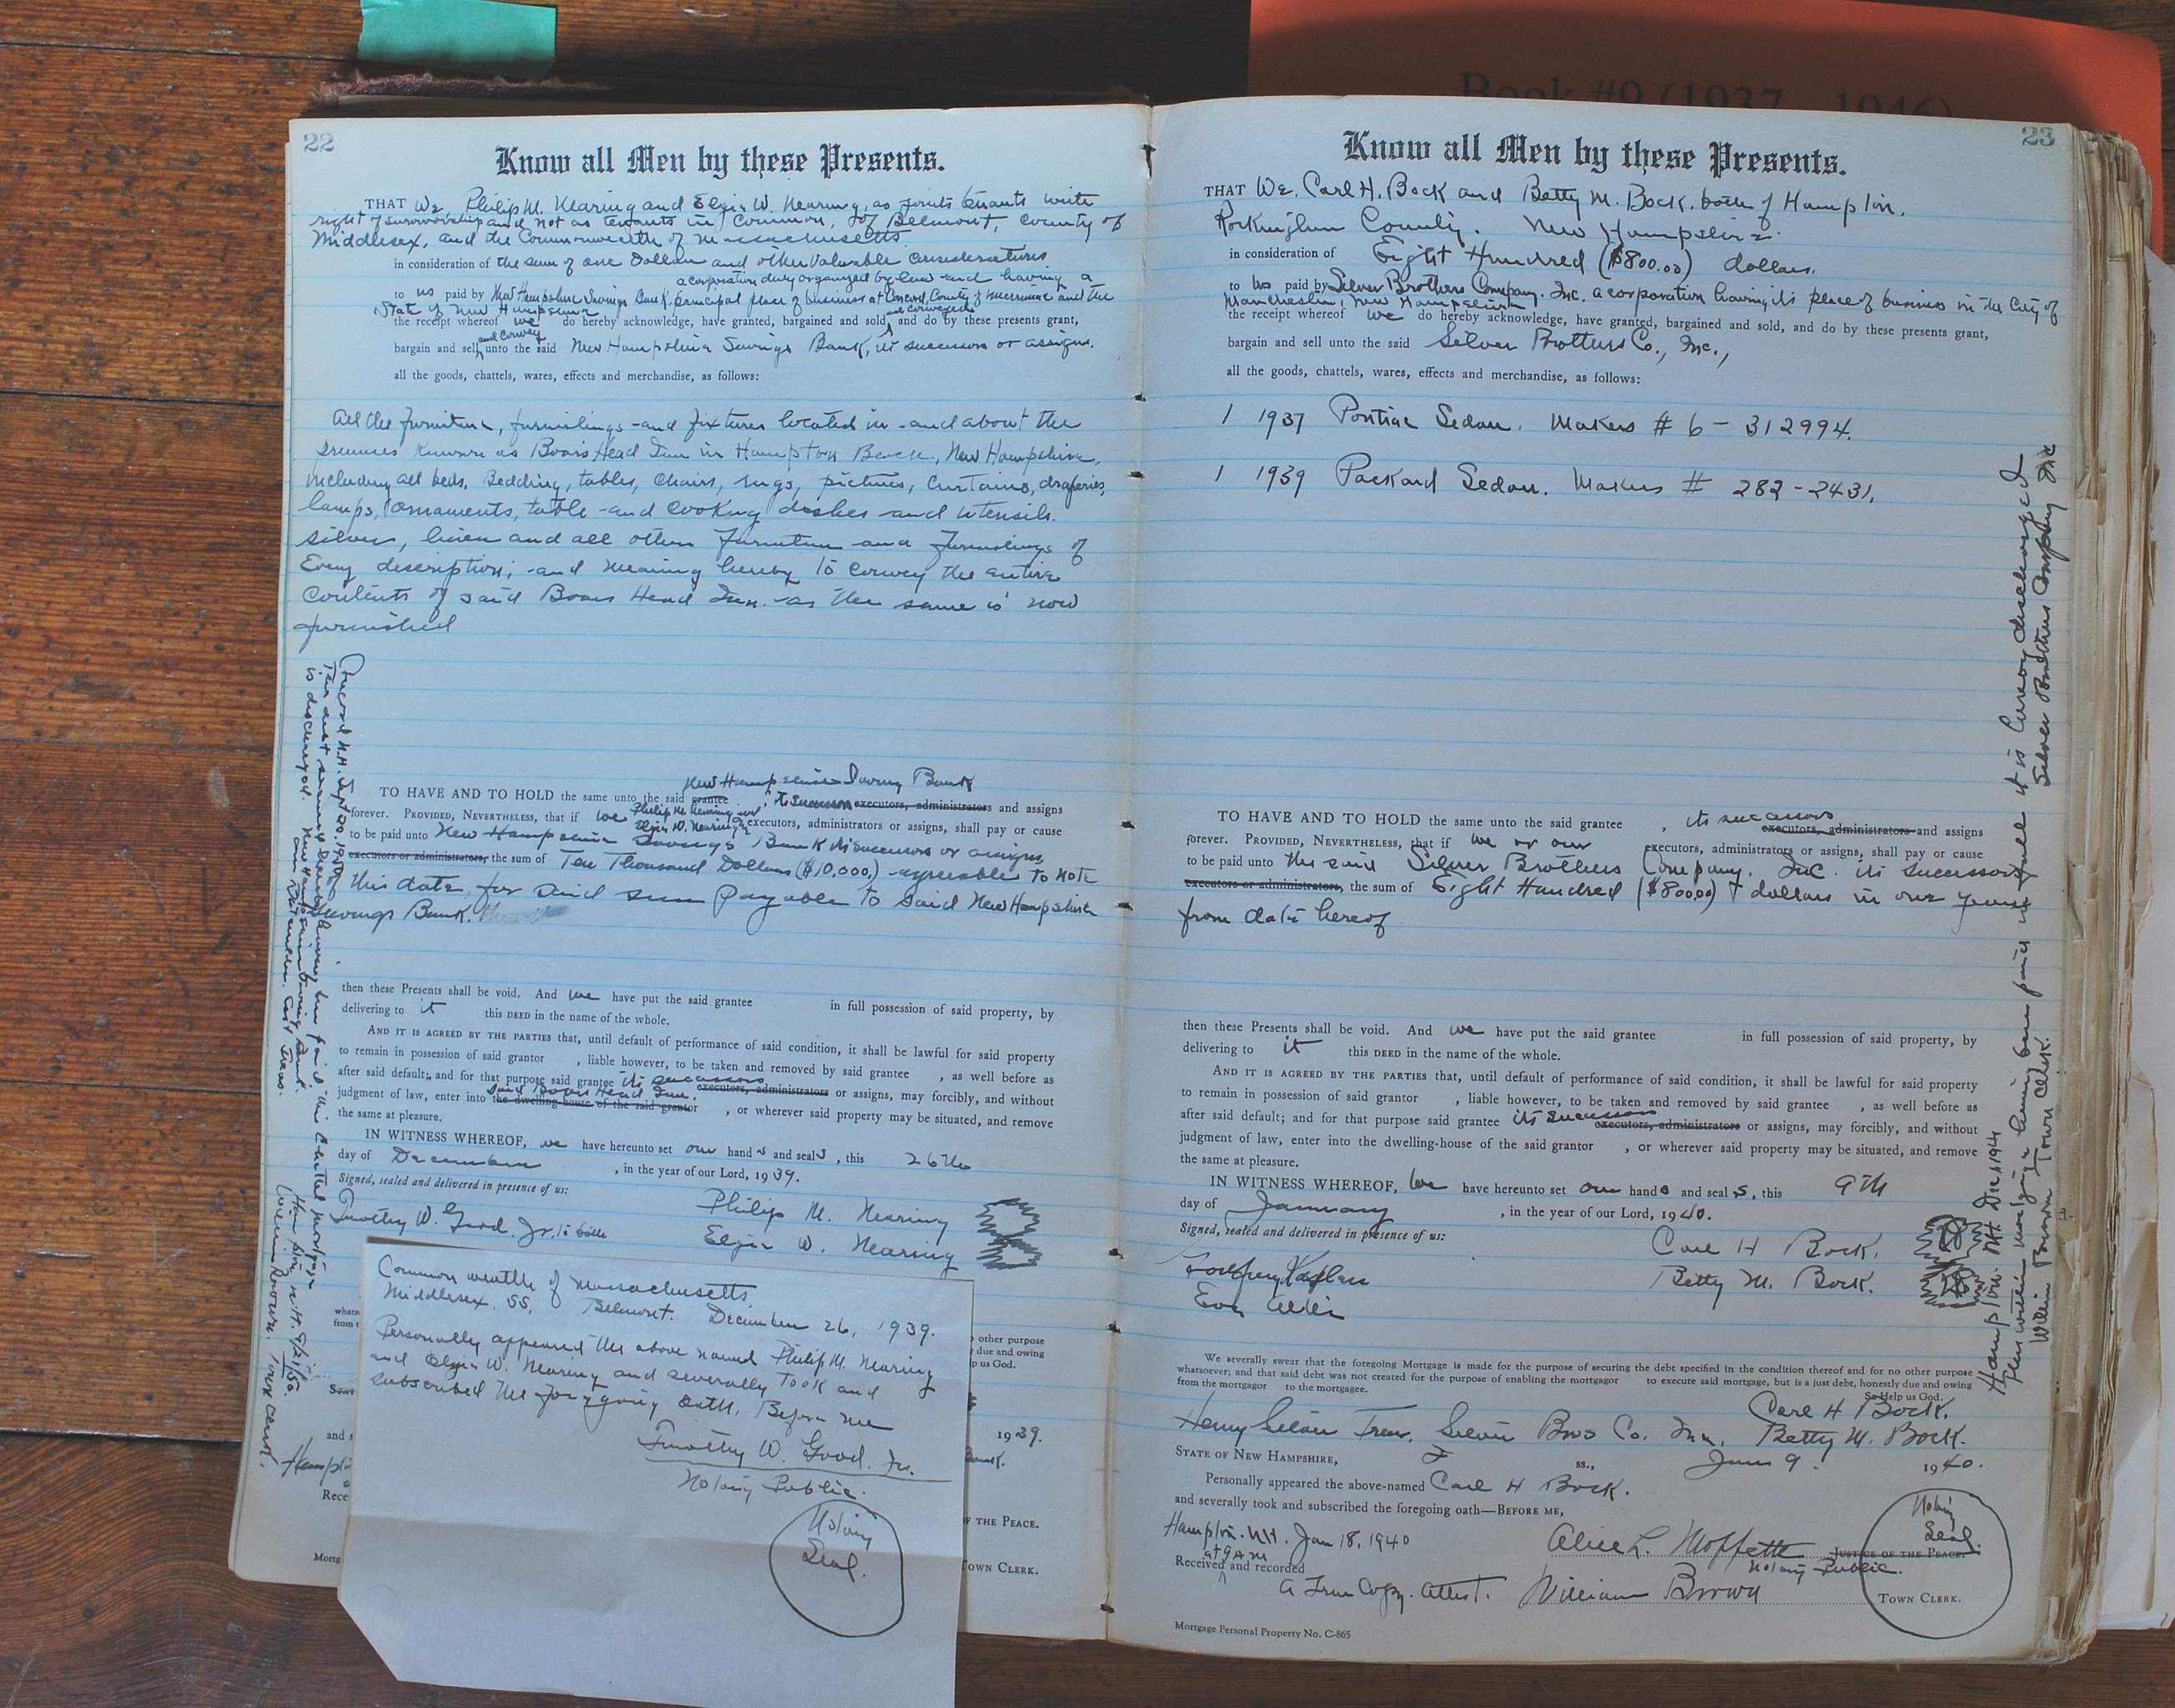 Book #9 (1937 - 1946)
22
Know all Men by these Presents.
THAT We, Philip M. Nearing and Elgin W. Nearing, as joints tenants with
right of survivorship and not as tenants in common, of Belmont, County of
Middlesex, and the Commonwealth of Massachusetts
in consideration of the sum of one Dollar and other valuable considerations
a corporation duly organized by law and having a
to us paid by New Hampshire Savings Bank, principal place of business at Concord, County of Merrimac and the
State of New Hampshire
the receipt whereof we do hereby acknowledge, have granted, bargained and sold and conveyed and do by these presents grant,
bargain and sell and convey unto the said New Hampshire Savings Bank, its successors or assigns.
all the goods, chattels, wares, effects and merchandise, as follows:
All the furniture, furnishings and fixtures located in and about the
premises known as Boars Head Inn in Hampton Beach, New Hampshire,
including all beds, Bedding, tables, chairs, rugs, pictures, curtains, draperies,
lamps, ornaments, table and cooking dishes and utensils.
silver, linen and all other furniture and furnishings of
Every description; and meaning hereby to convey the entire
contents of said Boars Head Inn as the same is now
furnished
New Hampshire Saving Bank
TO HAVE AND TO HOLD the same unto the said grantee, its successors executors, administrators and assigns
forever. PROVIDED, NEVERTHELESS, that if we Philip M. Nearing and Elgin W. Nearing executors, administrators or assigns, shall pay or cause
to be paid unto New Hampshire Savings Bank its successors or assigns
executors or administrators, the sum of Ten Thousand Dollars ($10,000.) agreeable to note
this date, for said sum payable to said New Hampshire
Savings Bank.
then these Presents shall be void. And we have put the said grantee in full possession of said property, by
delivering to it this DEED in the name of the whole.
AND IT IS AGREED BY THE PARTIES that, until default of performance of said condition, it shall be lawful for said property
to remain in possession of said grantor , liable however, to be taken and removed by said grantee , as well before as
after said default; and for that purpose said grantee its successors executors, administrators or assigns, may forcibly, and without
judgment of law, enter into said Boars Head Inn. the dwelling-house of the said grantor , or wherever said property may be situated, and remove
the same at pleasure.
IN WITNESS WHEREOF, we have hereunto set our hands and seals, this 26th
day of December , in the year of our Lord, 1939.
Signed, sealed and delivered in presence of us:
Timothy W. Good. Jr. to both
Philip M. Nearing
Elgin W. Nearing
Concord N.H. Sept 20. 1950
is discharged. New Hampshire Savings Bank.
Hampton N.H. 9/21/50
William Brown. Town Clerk.
Common wealth of Massachusetts
Middlesex. SS. Belmont. December 26, 1939.
Personally appeared the above named Philip M. Nearing
and Elgin W. Nearing and severally took and
subscribed the foregoing oath. Before me
Timothy W. Good. Jr.
Notary Public.
Notary
Seal.
other purpose
due and owing
p us God.
1939.
Bank.
OF THE PEACE.
TOWN CLERK.
23
Know all Men by these Presents.
THAT We, Carl H. Bock and Betty M. Bock. both of Hampton,
Rockingham County. New Hampshire.
in consideration of Eight Hundred ($800.00) dollars.
to us paid by Silver Brothers Company. Inc. a corporation having its place of business in the City of
Manchester, New Hampshire
the receipt whereof we do hereby acknowledge, have granted, bargained and sold, and do by these presents grant,
bargain and sell unto the said Silver Brothers Co., Inc.,
all the goods, chattels, wares, effects and merchandise, as follows:
1 1937 Pontiac Sedan. Makers # 6-312994.
1 1939 Packard Sedan. Makers # 282-2431.
TO HAVE AND TO HOLD the same unto the said grantee , its successors executors, administrators and assigns
forever. PROVIDED, NEVERTHELESS, that if we or our executors, administrators or assigns, shall pay or cause
to be paid unto the said Silver Brothers Company. Inc. its successors
executors or administrators, the sum of Eight Hundred ($800.00) dollars in one year
from date hereof
then these Presents shall be void. And we have put the said grantee in full possession of said property, by
delivering to it this DEED in the name of the whole.
AND IT IS AGREED BY THE PARTIES that, until default of performance of said condition, it shall be lawful for said property
to remain in possession of said grantor , liable however, to be taken and removed by said grantee , as well before as
after said default; and for that purpose said grantee its successors executors, administrators or assigns, may forcibly, and without
judgment of law, enter into the dwelling-house of the said grantor , or wherever said property may be situated, and remove
the same at pleasure.
IN WITNESS WHEREOF, We have hereunto set our hands and seals, this 9th
day of January , in the year of our Lord, 1940.
Signed, sealed and delivered in presence of us:
Godfrey Kaplan
Carl H Bock.
Betty M. Bock.
We severally swear that the foregoing Mortgage is made for the purpose of securing the debt specified in the condition thereof and for no other purpose
whatsoever; and that said debt was not created for the purpose of enabling the mortgagor to execute said mortgage, but is a just debt, honestly due and owing
from the mortgagor to the mortgagee. So Help us God.
Carl H Bock.
Henry Silver Treas. Silver Bros Co. Inc. Betty M. Bock.
STATE OF NEW HAMPSHIRE, ss., Jan 9. 1940.
Personally appeared the above-named Carl H Bock.
and severally took and subscribed the foregoing oath—BEFORE ME,
Hampton. N.H. Jan 18, 1940
Alice L. Moffette JUSTICE OF THE PEACE.
Notary Public.
at 9 AM
Received and recorded
A True Copy. Attest. William Brown TOWN CLERK.
Notary
Seal.
Mortgage Personal Property No. C-865
Hampton. NH Dec 1944
The within mortgage having been paid in full it is hereby discharged
Silver Brothers Company Inc
William Brown Town Clerk.